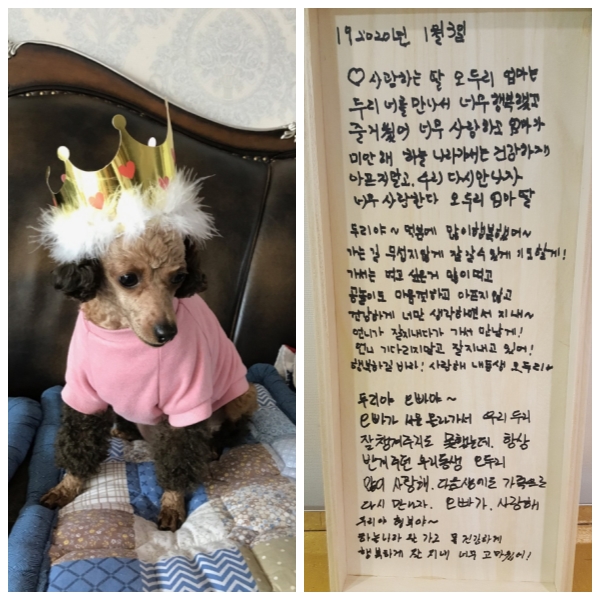 2020년 1월 3일
♡사랑하는 딸 오두리 엄마는
두리 너를 만나서 너무 행복했고
즐거웠어 너무 사랑하고 엄마가
미안해 하늘 나라가서는 건강하게
아프지말고, 우리 다시만나자
너무 사랑한다 오두리 엄마 딸
두리야~ 덕분에 많이행복했어~
가는 길 무섭지않게 잘갈수있게 기도할게!
가서는 먹고 싶은거 많이먹고
공놀이도 마음껏하고 아프지않고
건강하게 너만 생각하면서 지내~
언니가 잘지내다가 가서 만날게!
언니 기다리지말고 잘지내고 있어!
행복하길 바래! 사랑해 내동생 오두리♡
두리야 오빠야~
오빠가 서울 올라가서 우리 두리
잘챙겨주지도 못했는데. 항상
반겨주던 우리동생 오두리
많이 사랑해. 다음생에도 가족으로
다시 만나자. 오빠가. 사랑해
두리야 형부야~
하늘나라 잘 가고 꼭 건강하게
행복하게 잘 지내 너무 고마웠어!